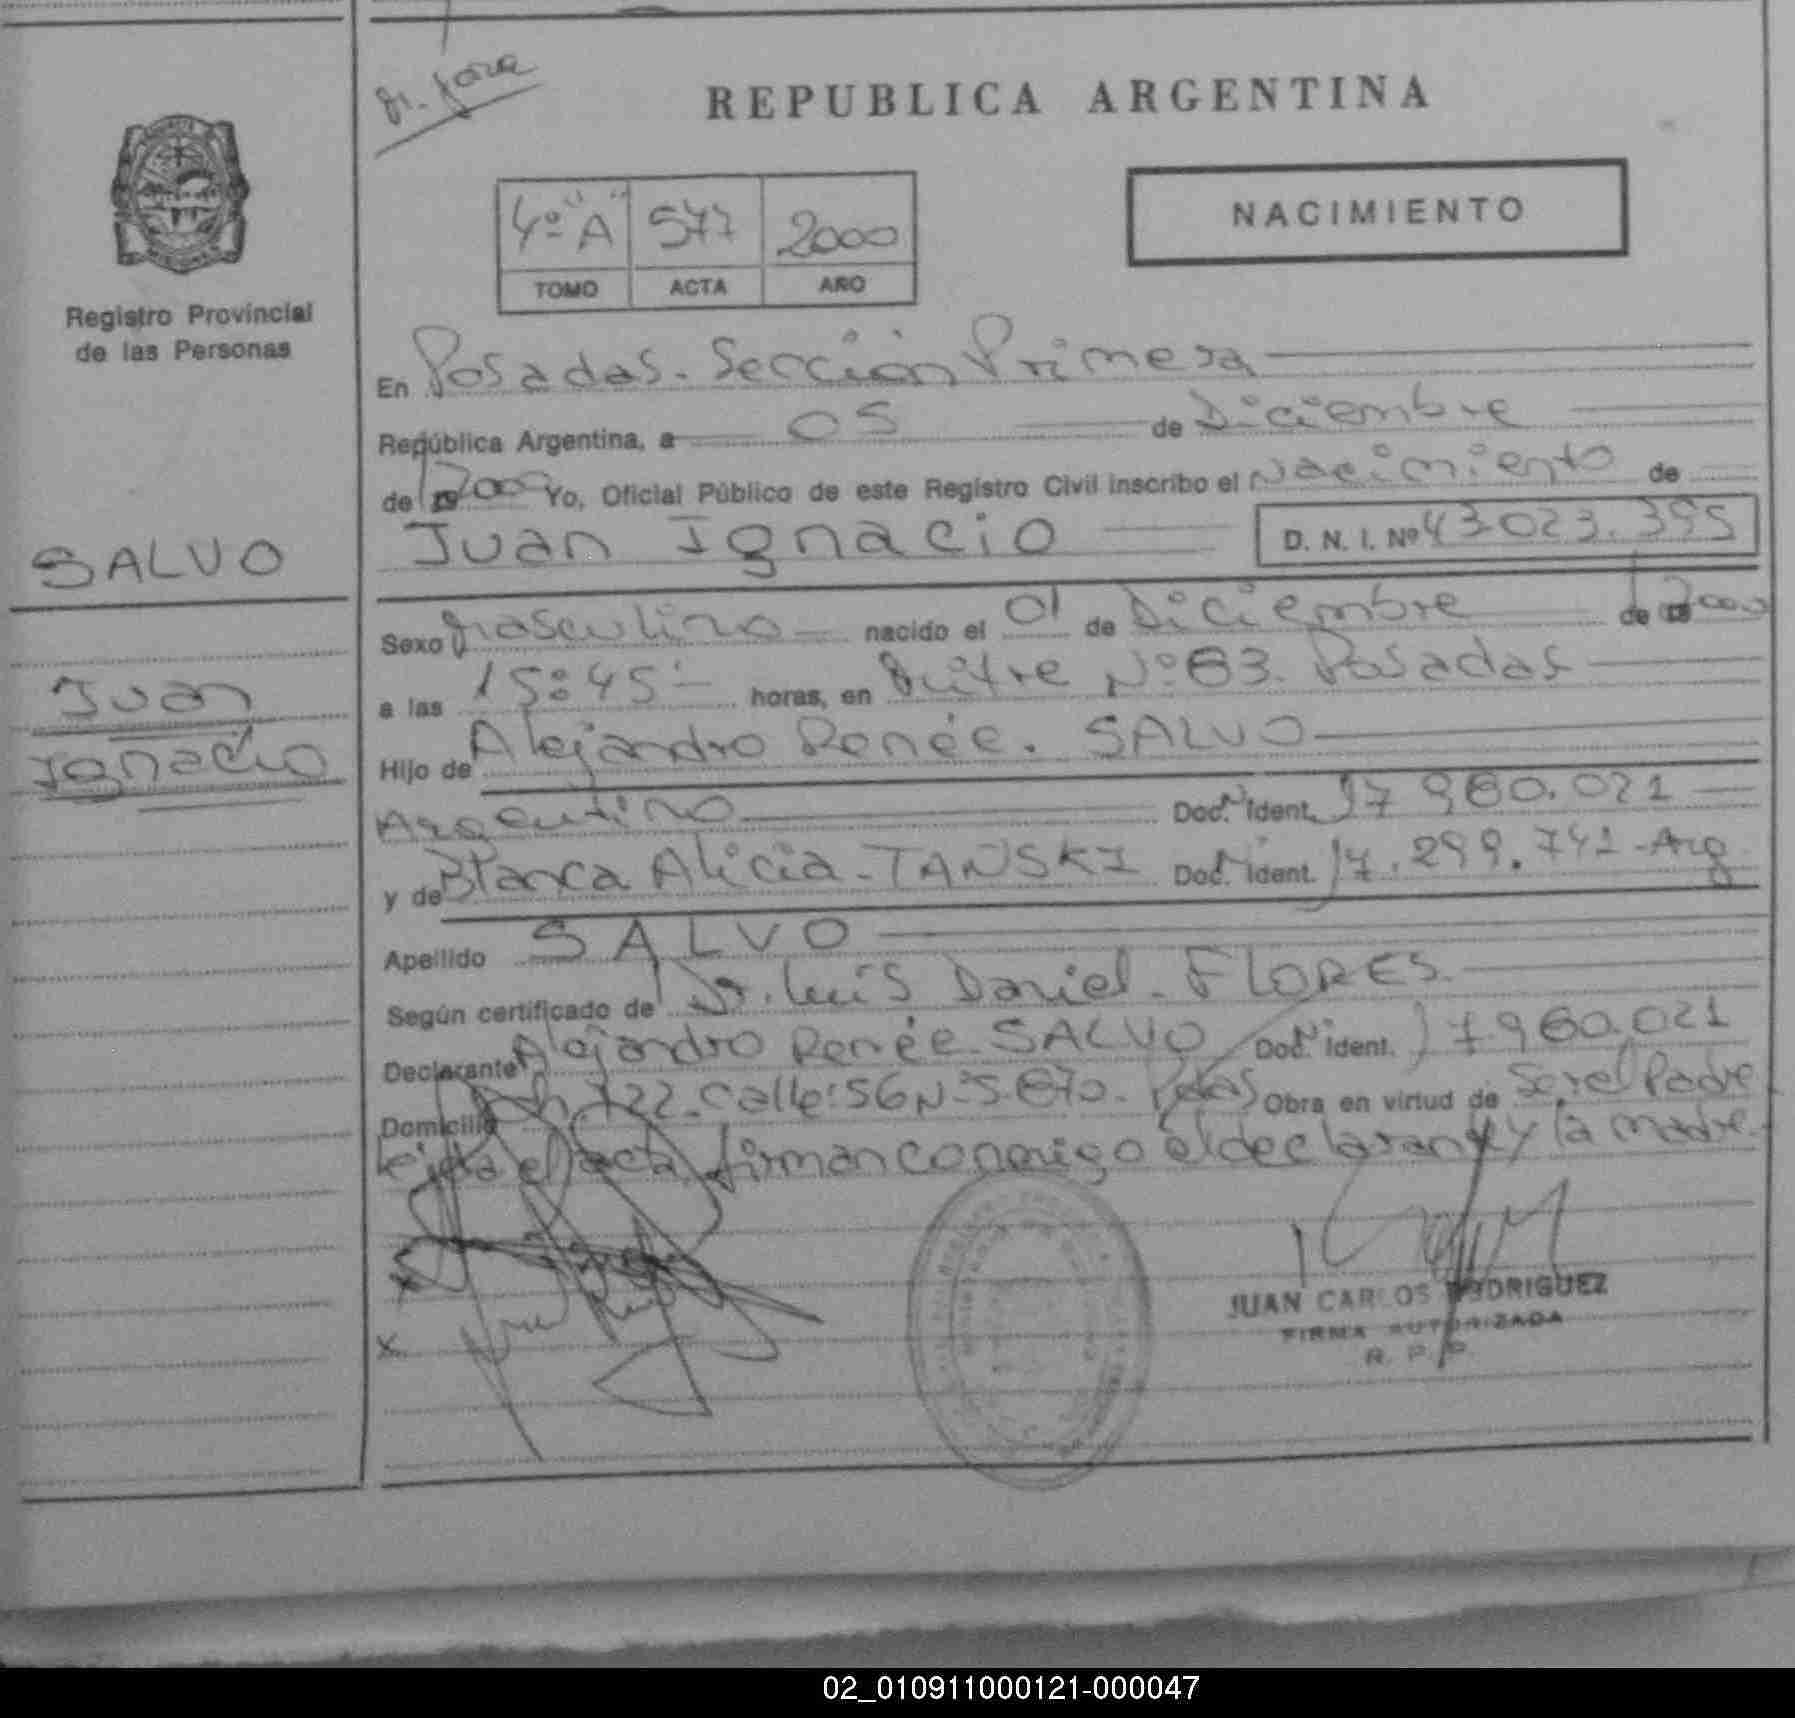 REPUBLICA ARGENTINA
4º "A" 577 2000
TOMO ACTA AÑO
NACIMIENTO
Registro Provincial
de las Personas
En Posadas. Sección Primera
República Argentina, a 05 de Diciembre
de 2000 Yo, Oficial Público de este Registro Civil inscribo el Nacimiento de
Juan Ignacio D. N. I. Nº 43.023.395
SALVO
Juan
Ignacio
Sexo Masculino nacido el 01 de Diciembre de 2000
a las 15:45 horas, en Mitre Nº 63. Posadas
Hijo de Alejandro Renée. SALVO
Argentino Doc. Ident. 17.960.021
y de Blanca Alicia - TANSKI Doc. Ident. 17.299.741 - Arg
Apellido SALVO
Según certificado de Dr. Luis Daniel - FLORES
Declarante Alejandro Renée - SALVO Doc. Ident. 17.960.021
Domicilio Ch 122 - Calle: 56 Nº 5870 - Pdas Obra en virtud de Ser el Padre
Leída el acta, firman conmigo el declarante y la madre.
JUAN CARLOS RODRIGUEZ
FIRMA AUTORIZADA
R. P. P.
02_010911000121-000047